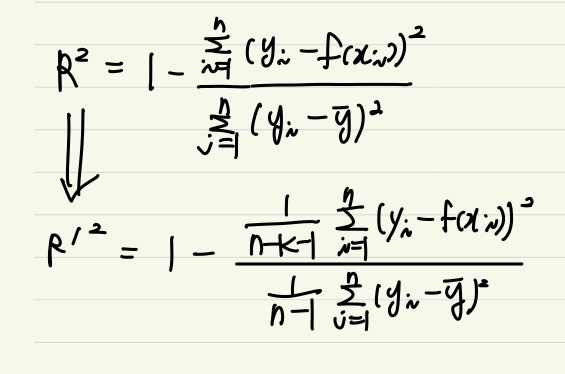 R² = 1 - \frac{\sum_{i=1}^{n} (y_i - f(x_i))^2}{\sum_{i=1}^{n} (y_i - \bar{y})^2}
⇓
R'² = 1 - \frac{\frac{1}{n-k-1} \sum_{i=1}^{n} (y_i - f(x_i))^2}{\frac{1}{n-1} \sum_{i=1}^{n} (y_i - \bar{y})^2}